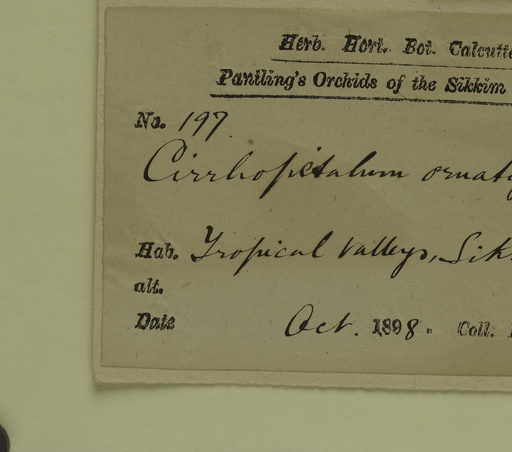 Herb. Hort. Bot. Calcutte
Pantling's Orchids of the Sikkim
No. 197.
Cirrhopetalum ornat
Hab. Tropical Valleys, Sik
alt.
Date Oct. 1898. Coll.